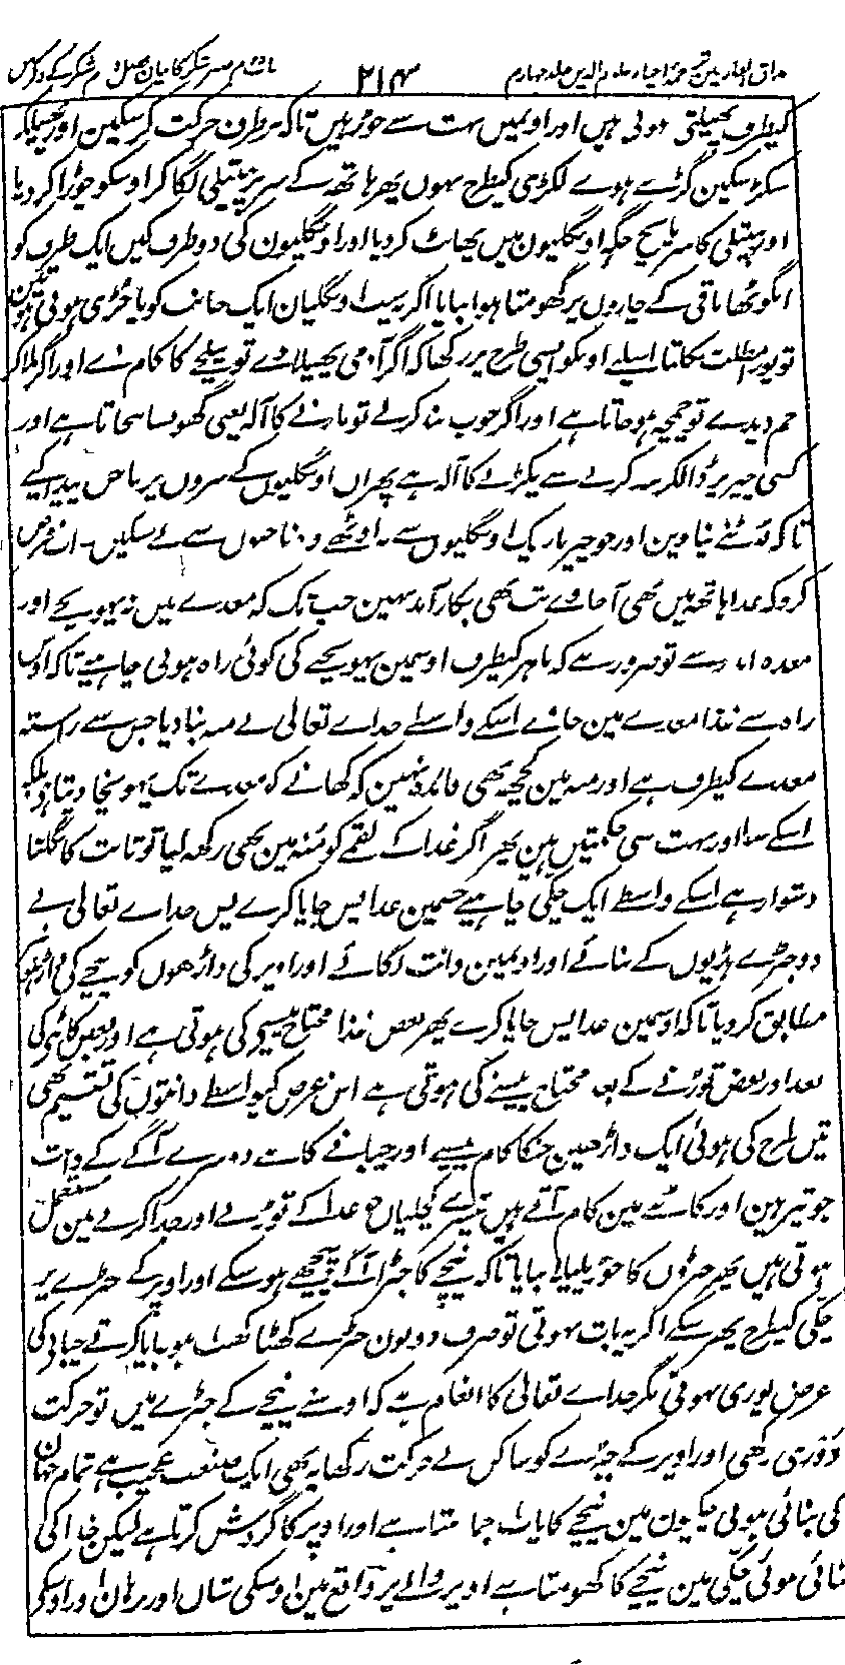 مذاق العارفین ترجمہ احیاء علوم الدین جلد چہارم ۲۱۴ باب دوم صبر و شکر کا بیان فصل دوم شکر کے ذکر میں
کیطرف پھیلتی ہوئی ہیں اور اونمیں بہت سے جوڑ ہیں تاکہ ہر طرف حرکت کر سکین اور پھیل کر
سکڑ سکین گڑے ہوے لکڑی کیطرح نہوں پھر ہاتھ کے سر پر ہتیلی لگا کر اوسکو چوڑا کر دیا
اور ہتیلی کا سر پانچ جگہ اونگلیون میں بھانٹ کر دیا اور اونگلیون کی دو طرف کیں ایک طرف کو
انگوٹھا باقی کے چاروں پر گھومتا ہوا بنایا اگر سب اونگلیان ایک جانب کو یا جڑی ہوئی ہوتین
تو پورا مطلب نکلتا اسلیے اونکو ایسی طرح پر رکھا کہ اگر آدمی پھیلا دے تو بیلچے کا کام دے اور اگر ملا کر
خم دیدے تو چمچہ ہو جاتا ہے اور اگر خوب بند کرلے تو مارنے کا آلہ یعنی گھونسا بنجاتا ہے اور
کسی چیز پر ڈالکر بند کرنے سے پکڑنے کا آلہ ہے پھر ان اونگلیوں کے سروں پر ناخن پیدا کیے
تاکہ ٹوٹنے نپاوین اور جو چیز باریک اونگلیوں سے نہ اوٹھے وہ ناخنوں سے لے سکیں۔ اب فرض
کرو کہ غذا ہاتھ میں بھی آ جاوے تب بھی بکار آمد نہین جب تک کہ معدے میں نہ پہونچے اور
معدہ اندر ہے تو ضرور ہے کہ باہر کیطرف اوسمین پہونچنے کی کوئی راہ ہونی چاہیے تاکہ اوس
راہ سے غذا معدے مین جائے اسکے واسطے خداے تعالی نے منہ بنا دیا جس سے رستہ
معدے کیطرف ہے اور منہ مین کچھ یہی فائدہ نہین کہ کھانے کو معدے تک پہونچا دیتا ہو بلکہ
اسکے سوا اور بہت سی حکمتیں ہین پھر اگر غذا کے لقمے کو مُنہ مین بھی رکھ لیا تو ثابت کا نگلنا
دشوار ہے اسکے واسطے ایک چکی چاہیے جسمین غذا پس جایا کرے پس خداے تعالی نے
دو جبڑے ہڈیوں کے بنائے اور اونمین دانت لگائے اور اوپر کی داڑھوں کو نیچے کی داڑھونکے
مطابق کر دیا تاکہ اوسمین غذا پس جایا کرے پھر بعض غذا محتاج پیسنے کی ہوتی ہے اور بعض کاٹنے کی
بعد اور بعض توڑنے کے بعد محتاج پیسنے کی ہوتی ہے اس غرض کیواسطے دانتوں کی تقسیم بھی
تین طرح کی ہوئی ایک داڑھین جنکا کام پیسنے اور چبانے کا ہے دوسرے آگے کے دانت
جو تیز ہین اور کاٹنے مین کام آتے ہیں تیسرے کچلیاں جو غذا کے توڑنے اور جدا کرنے مین مستعمل
ہوتی ہیں پھر جبڑوں کا جوڑ پلپلا بنایا تاکہ نیچے کا جبڑا آگے پیچھے ہو سکے اور اوپر کے جبڑے پر
چکی کیطرح پھر سکے اگر یہ بات نہوتی تو صرف دونون جبڑے کھٹا کھٹ ہو جایا کرتے چبانے کی
غرض پوری نہوتی مگر خداے تعالی کا انعام ہے کہ اوسنے نیچے کے جبڑے میں تو حرکت
دَوْری رکھی اور اوپر کے جبڑے کو ساکن بے حرکت رکھا یہ بھی ایک صنعت عجیب ہے تمام جہان
کی بنائی ہوئی چکیون مین نیچے کا پاٹ جما رہتا ہے اور اوپر کا گردش کرتا ہے لیکن خدا کی
بنائی ہوئی چکی مین نیچے کا گھومتا ہے اوپر والے پر واقع مین اوسکی شان اور برہان اور اوسکی